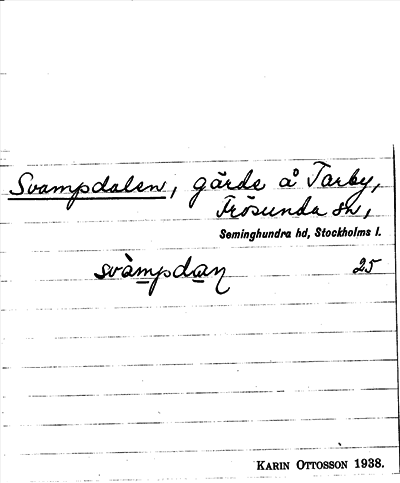 Svampdalen, gärde å Tarby,
Frösunda sn,
Seminghundra hd, Stockholms l.
svàmpdaṇ 25
KARIN OTTOSSON 1938.